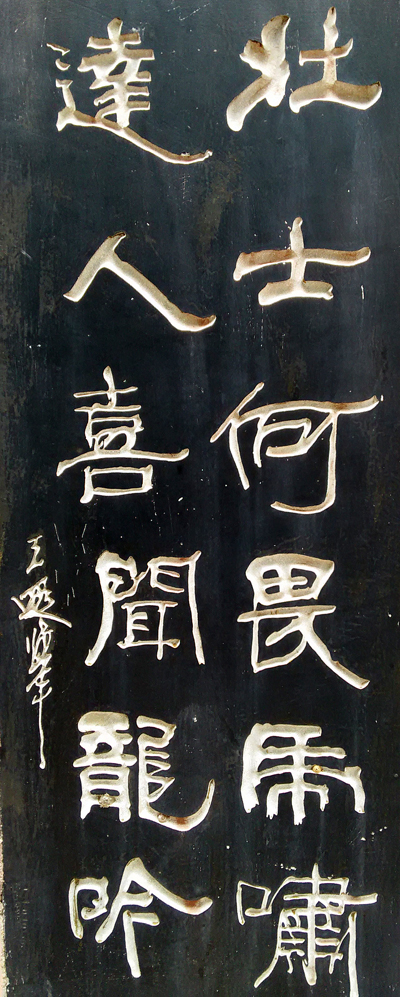 壯士何畏虎嘯
達人喜聞龍吟